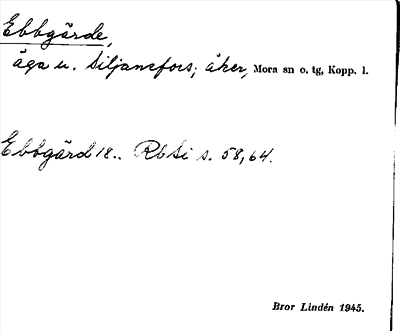 Ebbgärde,
äga u. Siljansfors; åker, Mora sn o. tg, Kopp. l.
Ebbgärd 18.. RbSi s. 58, 64.
Bror Lindén 1945.